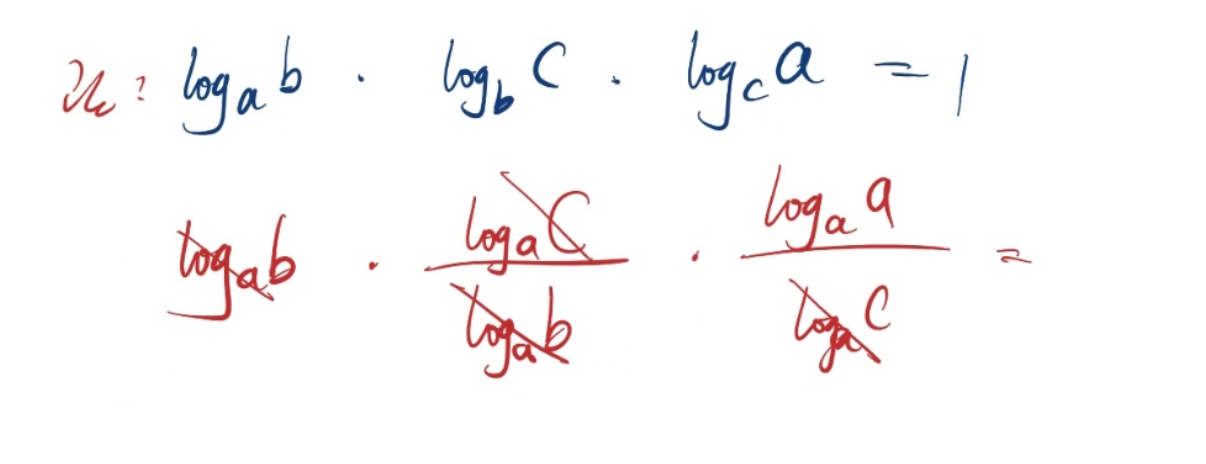 log_a b · log_b c · log_c a = 1
log_a b · (log_a c)/(log_a b) · (log_a a)/(log_a c) =